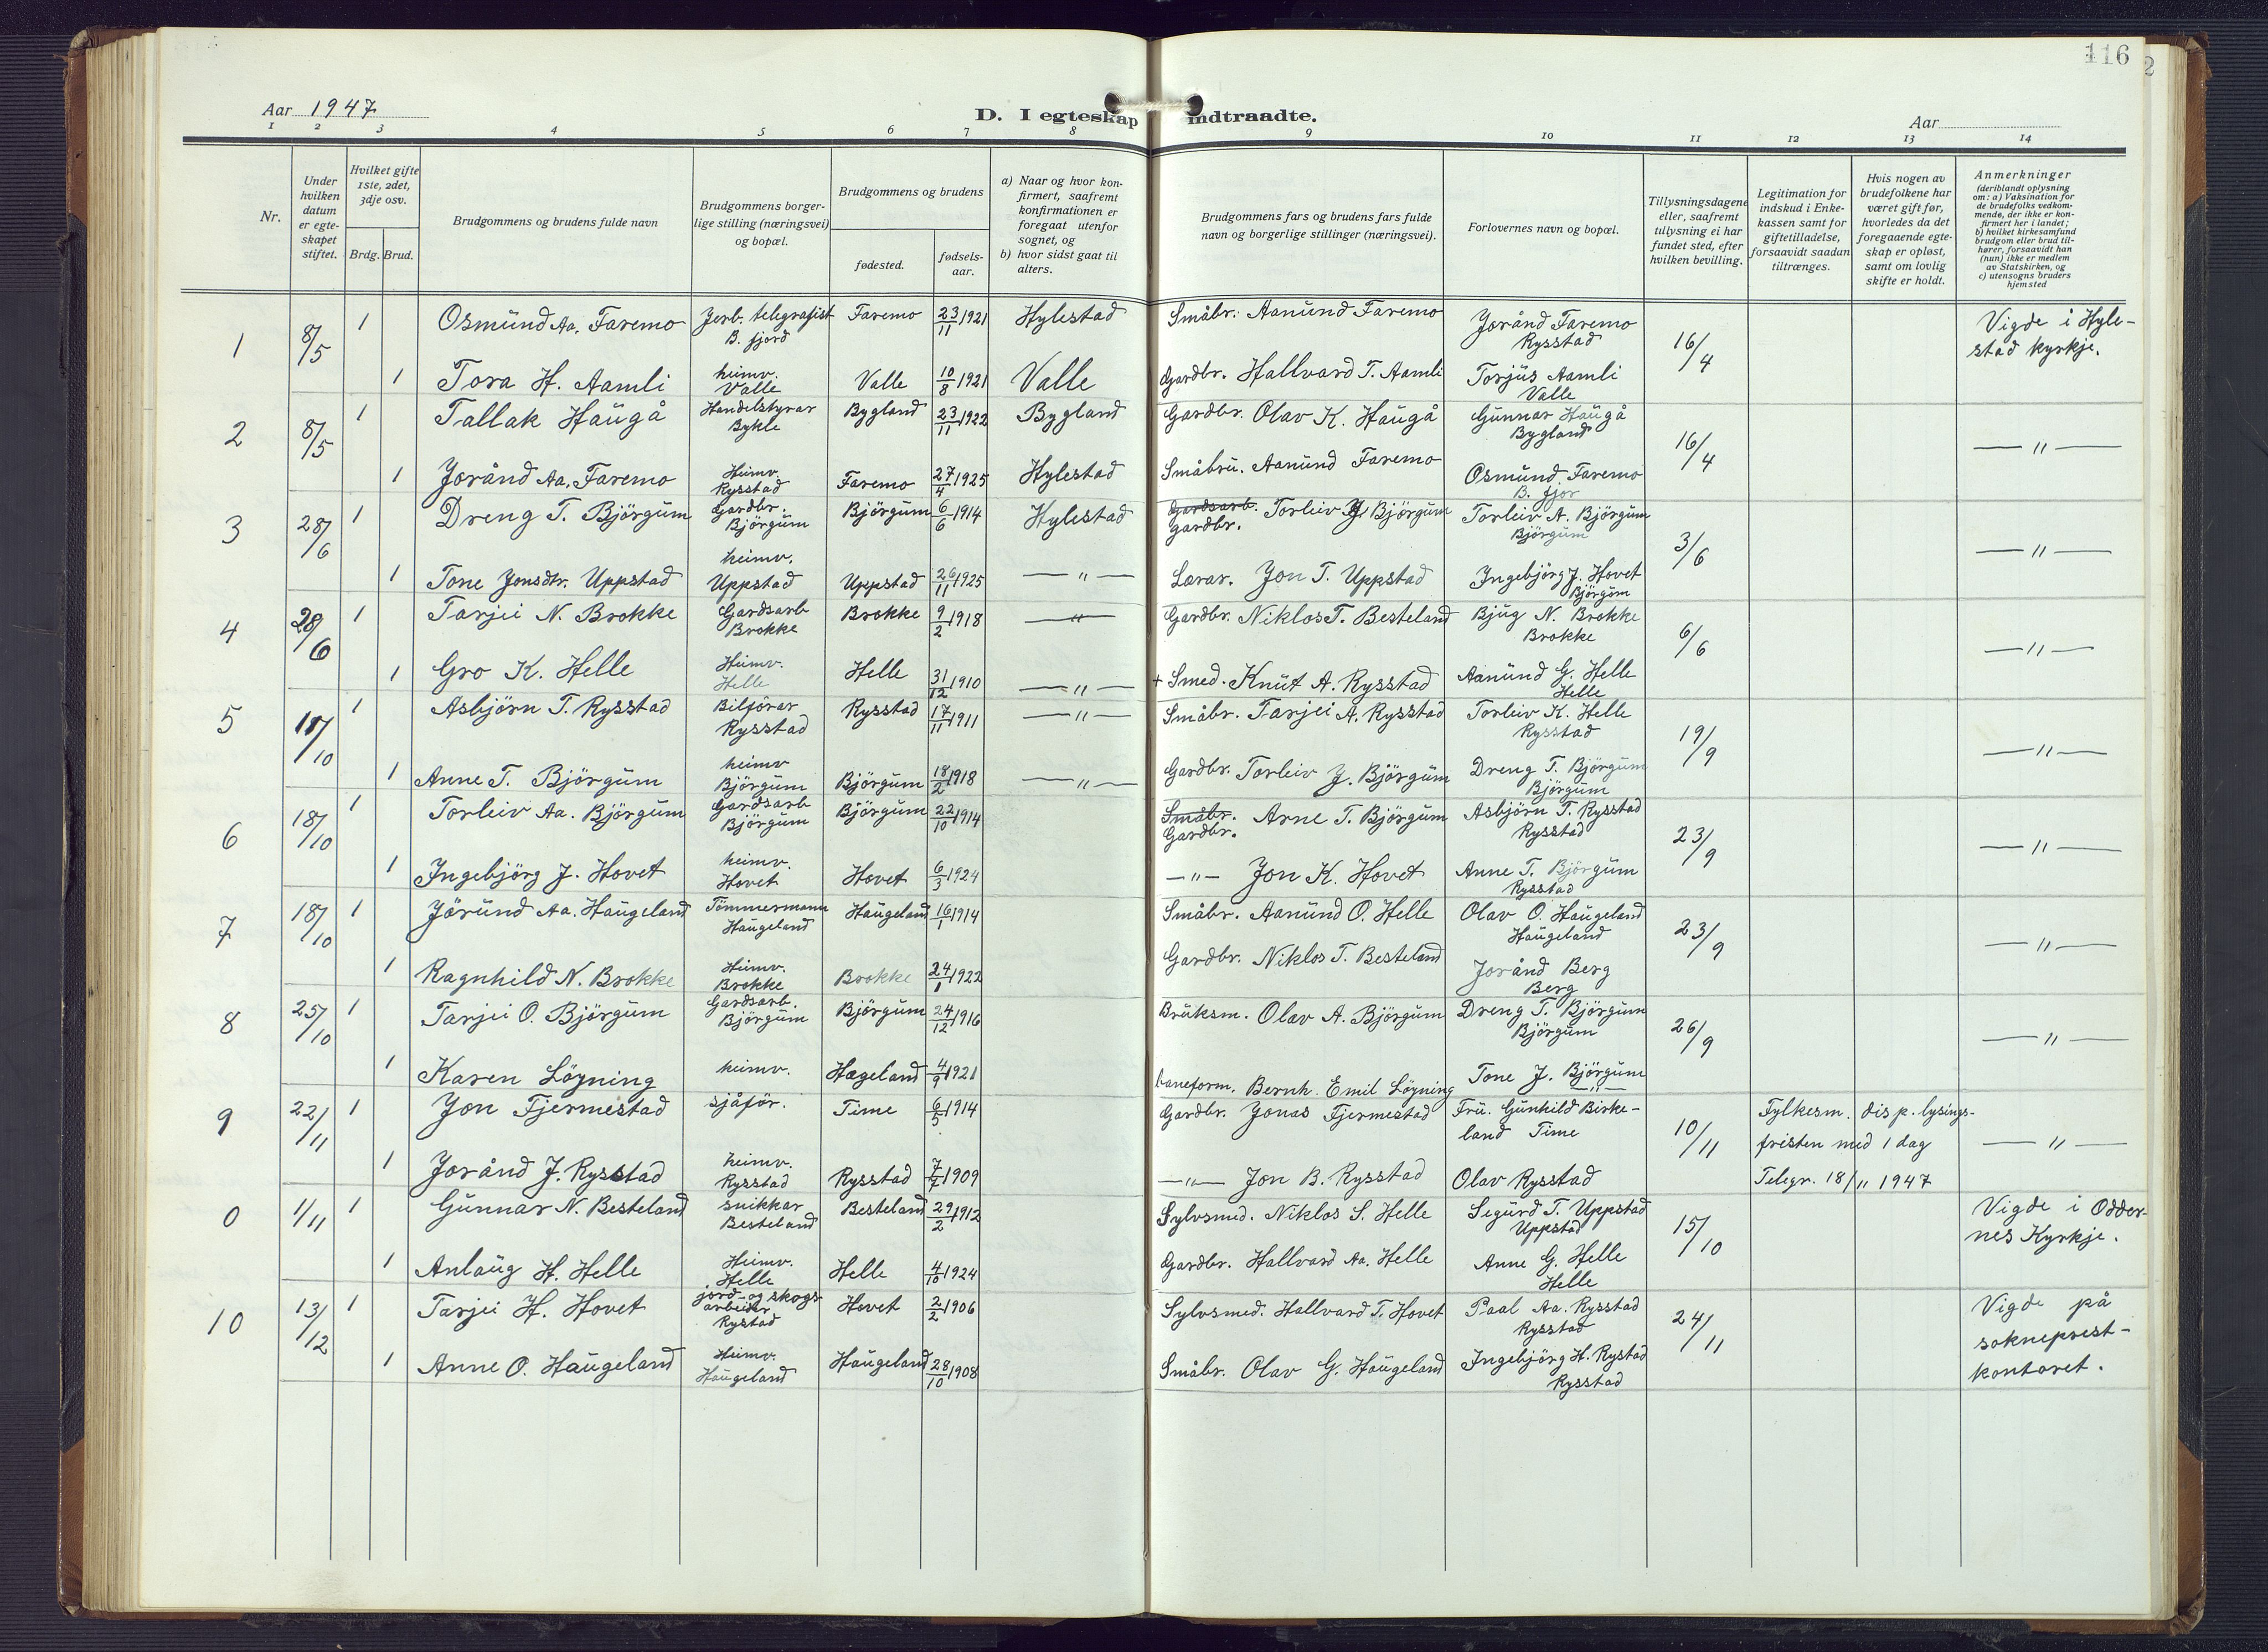 116
2
Aar 1947
D. I egteskap indtraadte.
Aar
1 2 3 4 5 6 7 8 9 10 11 12 13 14
Nr.
Under hvilken datum er egteskapet stiftet.
Hvilket gifte 1ste, 2det, 3dje osv.
Brdg. Brud.
Brudgommens og brudens fulde navn
Brudgommens borgerlige stilling (næringsvei) og bopæl.
Brudgommens og brudens
fødested.
fødselsaar.
a) Naar og hvor konfirmert, saafremt konfirmationen er foregaat utenfor sognet, og
b) hvor sidst gaat til alters.
Brudgommens fars og brudens fars fulde navn og borgerlige stillinger (næringsvei).
Forlovernes navn og bopæl.
Tillysningsdagene eller, saafremt tillysning ei har fundet sted, efter hvilken bevilling.
Legitimation for indskud i Enkekassen samt for giftetilladelse, forsaavidt saadan tiltrænges.
Hvis nogen av brudefolkene har været gift før, hvorledes da det foregaaende egteskap er opløst, samt om lovlig skifte er holdt.
Anmerkninger
(deriblandt oplysning om: a) Vaksination for de brudefolks vedkommende, der ikke er konfirmert her i landet; b) hvilket kirkesamfund brudgom eller brud tilhører, forsaavidt han (hun) ikke er medlem av Statskirken, og c) utensogns bruders hjemsted
1 8/5 1 Osmünd Aa. Faremo Jerb. telegrafist B. fjord Faremo 23/11 1921 Hylestad Småbr. Aanünd Faremo Joränd Faremo Rysstad 16/4 Vigde i Hylestad kyrkje.
1 Tora H. Aamli heimv. Valle Valle 10/8 1921 Valle Gardbr. Hallvard T. Aamli Torjüs Aamli Valle
2 8/5 1 Tallak Haügå Handelstyrar Bykle Bygland 23/11 1922 Bygland Gardbr. Olav K. Haügå Günnar Haügå Bygland 16/4 — " —
1 Jorånd Aa. Faremo Heimv. Rysstad Faremo 27/4 1925 Hylestad Småbrü. Aanünd Faremo Osmünd Faremo B. fjor
3 28/6 1 Dreng T. Björgüm Gardbr. Björgüm Björgüm 6/6 1914 Hylestad Gardsarb. Gardbr. Torleiv J. Björgüm Torleiv A. Björgüm Björgüm 3/6 — " —
1 Tone Jonsdtr. Uppstad heimv. Uppstad Uppstad 26/11 1925 — " — Lærar. Jon T. Uppstad Ingebjörg J. Hovet Björgüm
4 28/6 1 Tarjei N. Brokke Gardsarb Brokke Brokke 9/2 1918 — " — Gardbr. Niklos T. Besteland Bjüg N. Brokke Brokke 6/6 — " —
1 Gro K. Helle Heimv. Helle Helle 31/12 1910 — " — + Smed. Knüt A. Rysstad Aanünd G. Helle Helle
5 18/10 1 Asbjörn T. Rysstad Bilförar Rysstad Rysstad 17/11 1911 — " — Småbr. Tarjei A. Rysstad Torleiv K. Helle Rysstad 19/9 — " —
1 Anne T. Björgüm heimv Björgüm Björgüm 18/2 1918 — " — Gardbr. Torleiv J. Björgüm Dreng T. Björgüm Björgüm
6 18/10 1 Torleiv Aa. Björgüm Gardsarb Björgüm Björgüm 22/10 1914 Småbr. Gardbr. Arne T. Björgüm Asbjörn T. Rysstad Rysstad 23/9 — " —
1 Ingebjörg J. Hovet heimv. Hovet Hovet 6/3 1924 — " — Jon K. Hovet Anne T. Björgüm Rysstad
7 18/10 1 Jöründ Aa. Haügeland Tömmermann Haügeland Haügeland 16/1 1914 Småbr. Aanünd O. Helle Olav O. Haügeland Haügeland 23/9 — " —
1 Ragnhild N. Brokke Heimv. Brokke Brokke 24/1 1922 Gardbr. Niklos T. Besteland Jorånd Berg Berg
8 25/10 1 Tarjei O. Björgüm Gardsarb. Björgüm Björgüm 24/12 1916 Brüksm. Olav A. Björgüm Dreng T. Björgüm Björgüm 26/9 — " —
1 Karen Löyning heimv. Hægeland 4/9 1921 baneform. Bernh. Emil Löyning Tone J. Björgüm — " —
9 22/11 1 Jon Fjermestad sjåför. Time 6/5 1914 Gardbr. Jonas Fjermestad Frü. Günhild Birkeland Time 10/11 Fylkesm. disp. lysingsfristen med 1 dag Telegr. 18/11 1947 — " —
1 Jorånd J. Rysstad heimv. Rysstad Rysstad 7/7 1909 — " — Jon B. Rysstad Olav Rysstad
0 1/11 1 Günnar N. Besteland snikkar Besteland Besteland 29/2 1912 Sylvsmed. Niklos S. Helle Sigürd T. Uppstad Uppstad 15/10 Vigde i Oddernes Kyrkje.
1 Anlaüg H. Helle Heimv. Helle Helle 4/10 1924 Gardbr. Hallvard Aa. Helle Anne G. Helle Helle
10 13/12 1 Tarjei H. Hovet jord- og skogsarbeider Rystad Hovet 2/2 1906 Sylvsmed. Hallvard T. Hovet Paal Aa. Rysstad Rysstad 24/11 Vigde på sokneprestkontoret.
1 Anne O. Haügeland Heimv. Haügeland Haügeland 28/10 1908 Småbr. Olav G. Haügeland Ingebjörg H. Rystad Rysstad